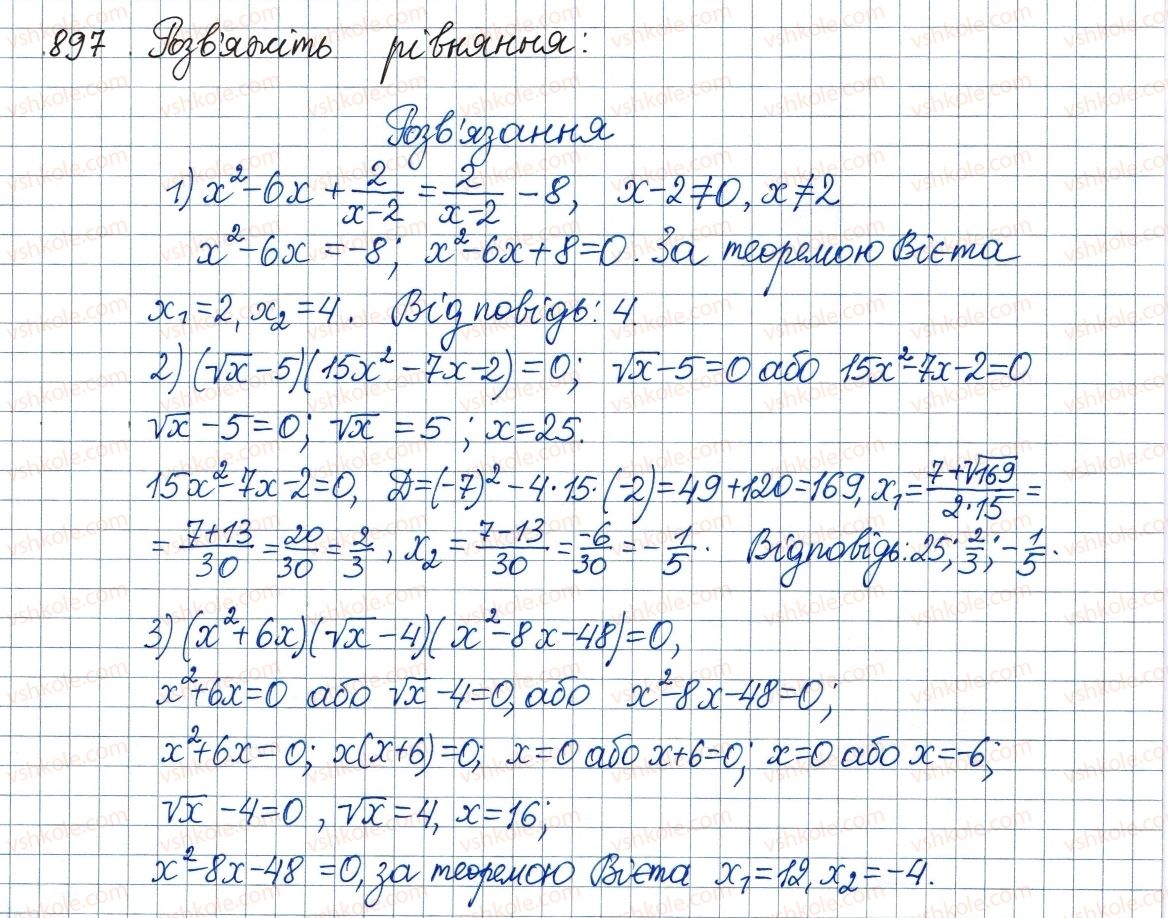 897. Розв'яжіть рівняння:
Розв'язання
1) x²-6x + 2/(x-2) = 2/(x-2) - 8, x-2≠0, x≠2
x²-6x = -8; x²-6x+8=0. За теоремою Вієта
x₁=2, x₂=4. Відповідь: 4.
2) (√x-5)(15x²-7x-2)=0; √x-5=0 або 15x²-7x-2=0
√x-5=0; √x=5; x=25.
15x²-7x-2=0, D=(-7)²-4·15·(-2)=49+120=169, x₁=(7+√169)/(2·15)=
=(7+13)/30=20/30=2/3, x₂=(7-13)/30=-6/30=-1/5. Відповідь: 25; 2/3; -1/5.
3) (x²+6x)(√x-4)(x²-8x-48)=0,
x²+6x=0 або √x-4=0, або x²-8x-48=0;
x²+6x=0; x(x+6)=0; x=0 або x+6=0; x=0 або x=-6;
√x-4=0, √x=4, x=16;
x²-8x-48=0, за теоремою Вієта x₁=12, x₂=-4.